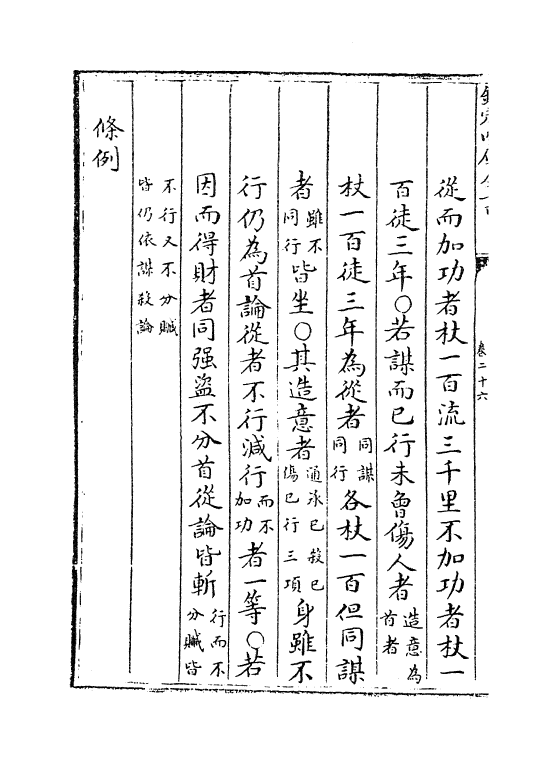 欽定四庫全書
卷二十六
從而加功者杖一百流三千里不加功者杖一
百徒三年○若謀而已行未曾傷人者造意為首者
杖一百徒三年為從者同謀同行各杖一百但同謀
者雖不同行皆坐○其造意者通承已殺已傷已行三項身雖不
行仍為首論從者不行減行而不加功者一等○若
因而得財者同强盗不分首從論皆斬行而不分贓皆
不行又不分贓皆仍依謀殺論
條例